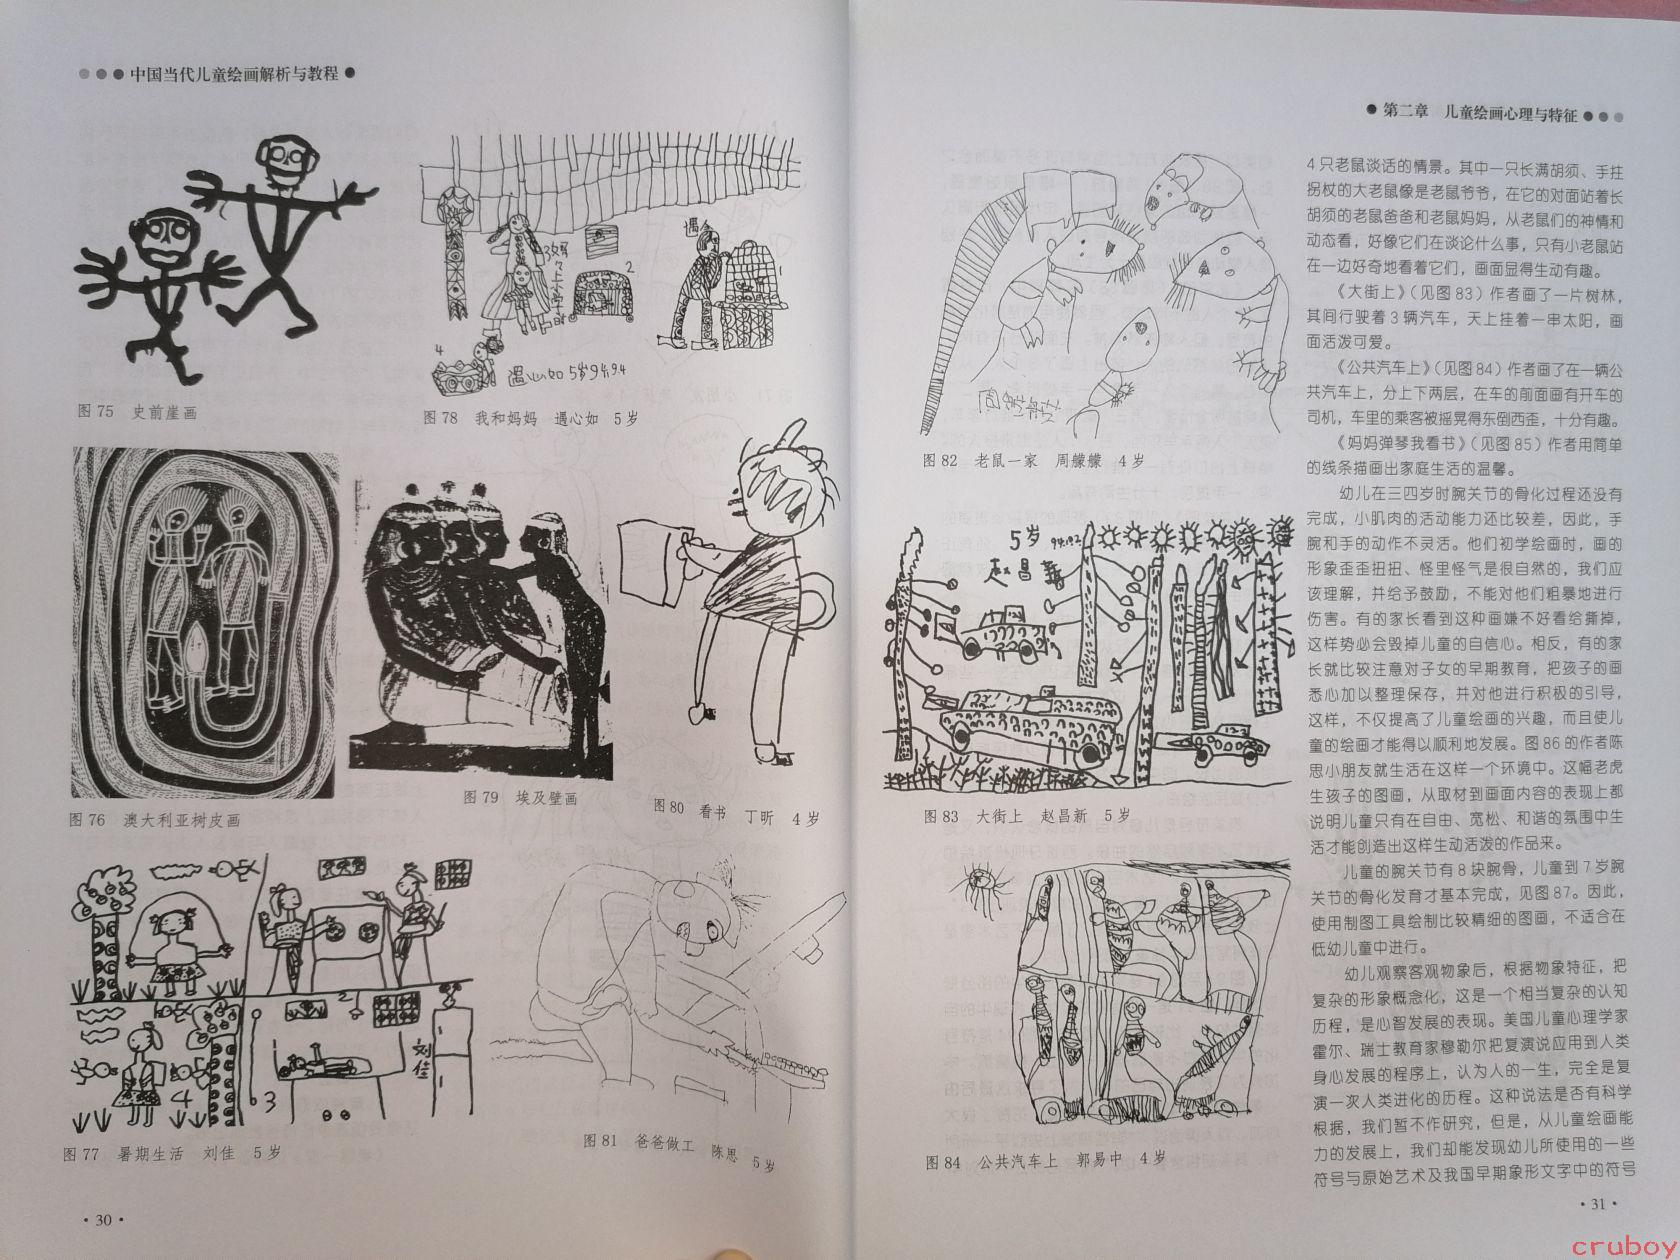 中国当代儿童绘画解析与教程
图 75 史前崖画
遇心如 5岁94.9.4
图 78 我和妈妈 遇心如 5 岁
图 76 澳大利亚树皮画
图 79 埃及壁画
图 80 看书 丁昕 4 岁
刘佳
图 77 暑期生活 刘佳 5 岁
图 81 爸爸做工 陈思 5 岁
· 30 ·
第二章 儿童绘画心理与特征
图 82 老鼠一家 周艨艨 4 岁
5岁
赵昌新
图 83 大街上 赵昌新 5 岁
图 84 公共汽车上 郭易中 4 岁
4 只老鼠谈话的情景。其中一只长满胡须、手拄
拐杖的大老鼠像是老鼠爷爷，在它的对面站着长
胡须的老鼠爸爸和老鼠妈妈，从老鼠们的神情和
动态看，好像它们在谈论什么事，只有小老鼠站
在一边好奇地看着它们，画面显得生动有趣。
《大街上》（见图 83）作者画了一片树林，
其间行驶着 3 辆汽车，天上挂着一串太阳，画
面活泼可爱。
《公共汽车上》（见图 84）作者画了在一辆公
共汽车上，分上下两层，在车的前面画有开车的
司机，车里的乘客被摇晃得东倒西歪，十分有趣。
《妈妈弹琴我看书》（见图 85）作者用简单
的线条描画出家庭生活的温馨。
幼儿在三四岁时腕关节的骨化过程还没有
完成，小肌肉的活动能力还比较差，因此，手
腕和手的动作不灵活。他们初学绘画时，画的
形象歪歪扭扭、怪里怪气是很自然的，我们应
该理解，并给予鼓励，不能对他们粗暴地进行
伤害。有的家长看到这种画嫌不好看给撕掉，
这样势必会毁掉儿童的自信心。相反，有的家
长就比较注意对子女的早期教育，把孩子的画
悉心加以整理保存，并对他进行积极的引导，
这样，不仅提高了儿童绘画的兴趣，而且使儿
童的绘画才能得以顺利地发展。图 86 的作者陈
思小朋友就生活在这样一个环境中。这幅老虎
生孩子的图画，从取材到画面内容的表现上都
说明儿童只有在自由、宽松、和谐的氛围中生
活才能创造出这样生动活泼的作品来。
儿童的腕关节有 8 块腕骨，儿童到 7 岁腕
关节的骨化发育才基本完成，见图 87。因此，
使用制图工具绘制比较精细的图画，不适合在
低幼儿童中进行。
幼儿观察客观物象后，根据物象特征，把
复杂的形象概念化，这是一个相当复杂的认知
历程，是心智发展的表现。美国儿童心理学家
霍尔、瑞士教育家穆勒尔把复演说应用到人类
身心发展的程序上，认为人的一生，完全是复
演一次人类进化的历程。这种说法是否有科学
根据，我们暂不作研究，但是，从儿童绘画能
力的发展上，我们却能发现幼儿所使用的一些
符号与原始艺术及我国早期象形文字中的符号
· 31 ·
cruboy